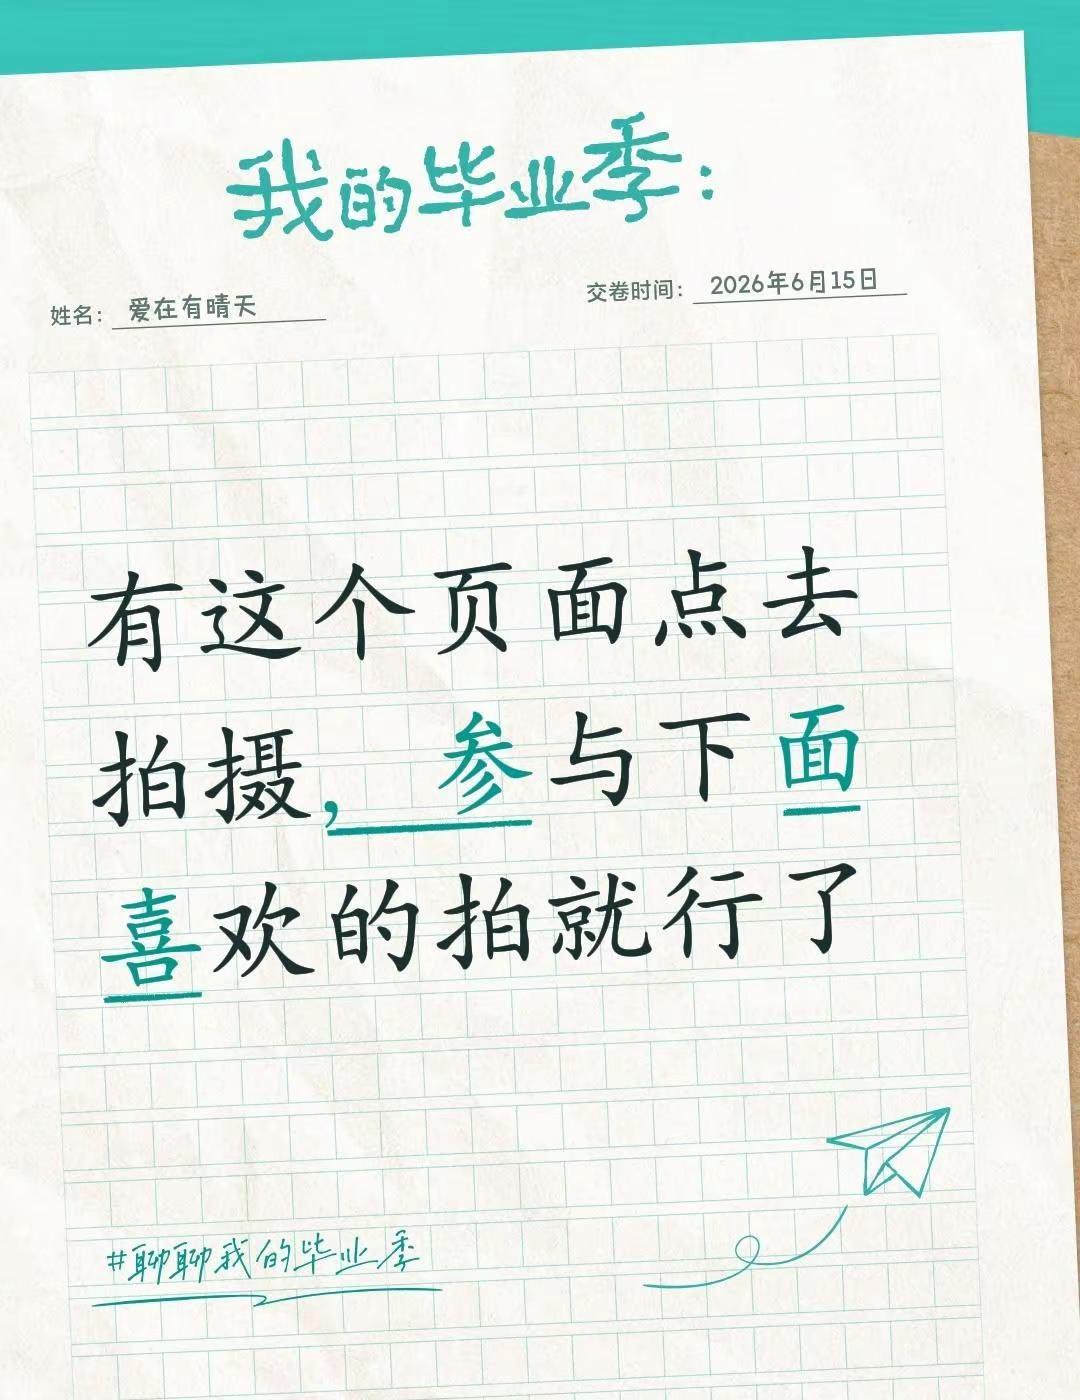 我的毕业季：
姓名： 爱在有晴天
交卷时间： 2026年6月15日
有这个页面点去
拍摄，参与下面
喜欢的拍就行了
#聊聊我的毕业季